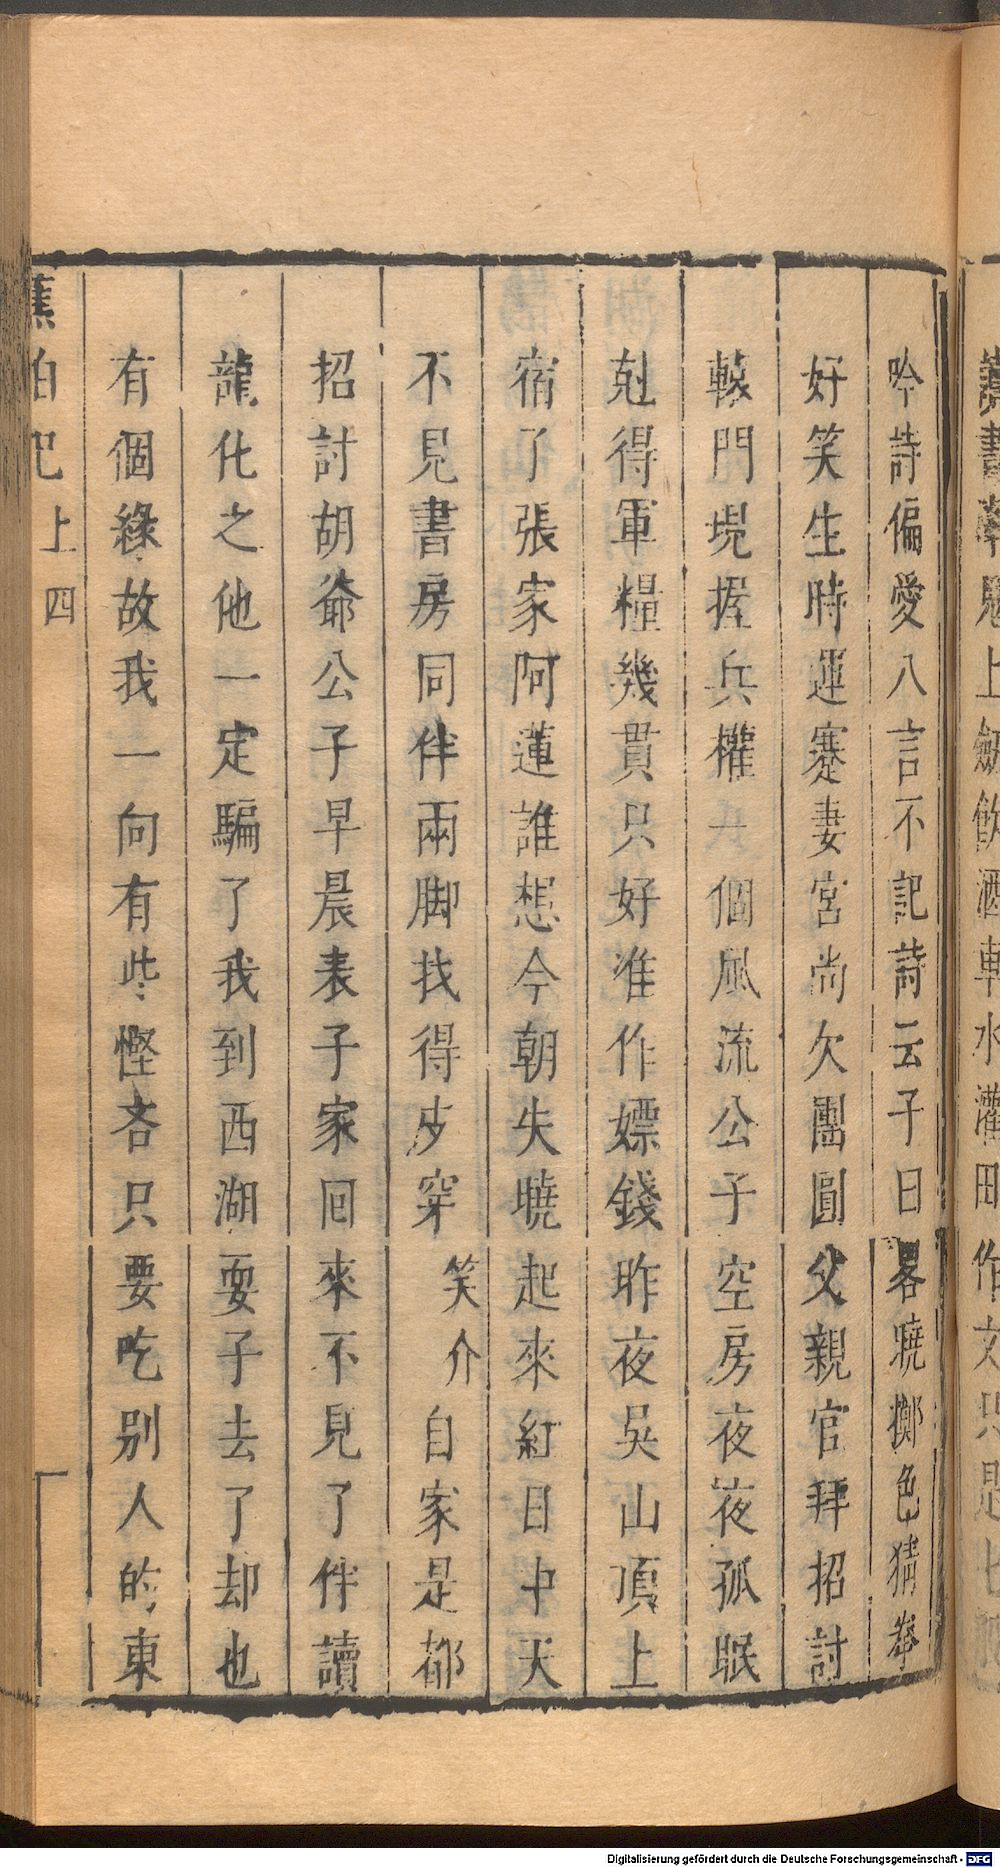 吟詩偏愛八言不記詩云子曰畧曉擲色猜拳
好笑生時運蹇妻宮尚欠團圓父親官拜招討
轅門堄握兵權一個風流公子空房夜夜孤眠
尅得軍糧幾貫只好准作嫖錢昨夜吳山頂上
宿了張家阿蓮誰想今朝失曉起來紅日中天
不見書房同伴兩脚找得皮穿笑介自家是都
招討胡爺公子早晨表子家囘來不見了伴讀
龍化之他一定騙了我到西湖耍子去了却也
有個緣故我一向有些慳吝只要吃別人的東
蕉帕記上 四
Digitalisierung gefördert durch die Deutsche Forschungsgemeinschaft - DFG